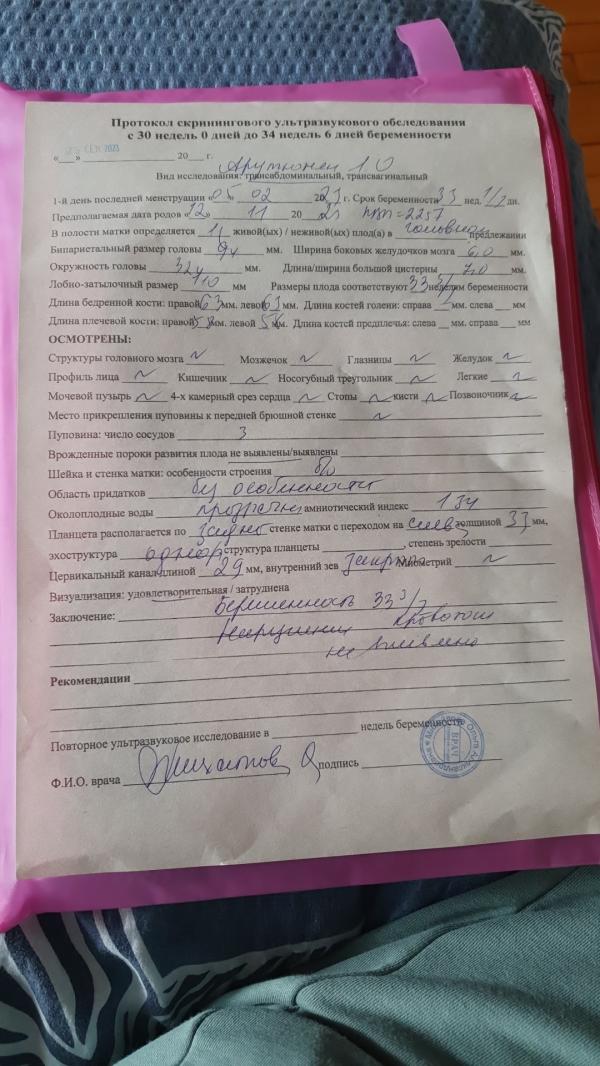 Протокол скринингового ультразвукового обследования
с 30 недель 0 дней до 34 недель 6 дней беременности
«___» СЕН 2023 20___ г.
Арутюнян
Вид исследования: трансабдоминальный, трансвагинальный
1-й день последней менструации «05» 02 2023 г. Срок беременности 33 нед. 1/7 дн.
Предполагаемая дата родов «12» 11 20 23 ПМП = 2257
В полости матки определяется 1 живой(ых) / неживой(ых) плод(а) в головном предлежании
Бипариетальный размер головы мм. Ширина боковых желудочков мозга 6,0 мм.
Окружность головы 324 мм. Длина/ширина большой цистерны 7,0 мм.
Лобно-затылочный размер 110 мм Размеры плода соответствуют 33 неделям беременности
Длина бедренной кости: правой 63 мм. левой 63 мм. Длина костей голени: справа ___ мм. слева ___ мм
Длина плечевой кости: правой 58 мм. левой 58 мм. Длина костей предплечья: слева __ мм. справа ___ мм
ОСМОТРЕНЫ:
Структуры головного мозга N Мозжечок N Глазницы N Желудок N
Профиль лица N Кишечник N Носогубный треугольник N Легкие N
Мочевой пузырь N 4-х камерный срез сердца N Стопы N кисти N Позвоночник N
Место прикрепления пуповины к передней брюшной стенке N
Пуповина: число сосудов 3
Врожденные пороки развития плода не выявлены/выявлены
Шейка и стенка матки: особенности строения б/о
Область придатков без особенностей
Околоплодные воды прозрачн амниотический индекс 134
Планцета располагается по задней стенке матки с переходом на слева толщиной 33 мм,
эхоструктура однор структура планцеты ____________, степень зрелости ________
Цервикальный канал длиной 29 мм, внутренний зев закрыт Миометрий N
Визуализация: удовлетворительная / затруднена
Заключение: Беременность 33 3/7
Нарушений кровотока
не выявлено
Рекомендации
Повторное ультразвуковое исследование в ______________ недель беременности
Ф.И.О. врача подпись
ВРАЧ